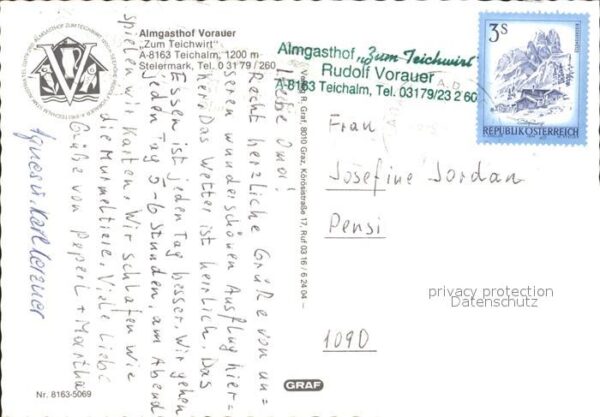 Almgasthof Vorauer
„Zum Teichwirt"
A-8163 Teichalm, 1200 m
Steiermark, Tel. 0 3179 / 260
Almgasthof „Zum Teichwirt"
Rudolf Vorauer
A-8163 Teichalm, Tel. 03179/23 2 60
3 S
REPUBLIK ÖSTERREICH
Liebe Omi!
Recht herzliche Grüße von un=
seren wunderschönen Ausflug hier=
her. Das Wetter ist herrlich. Das
Essen ist jeden Tag besser. Wir gehen
jeden Tag 5-6 Stunden, am Abend
spielen wir Karten. Wir schlafen wie
die Murmeltiere. Viele Liebe
Grüße von Peperl + Martha
Agnes u. Karl
Verlag R. Graf, 8010 Graz, Körösistraße 17, Ruf 03 16 / 6 24 04 –
Frau
Josefine Jordan
Pensi
1090
privacy protection
Datenschutz
Nr. 8163-5069
GRAF